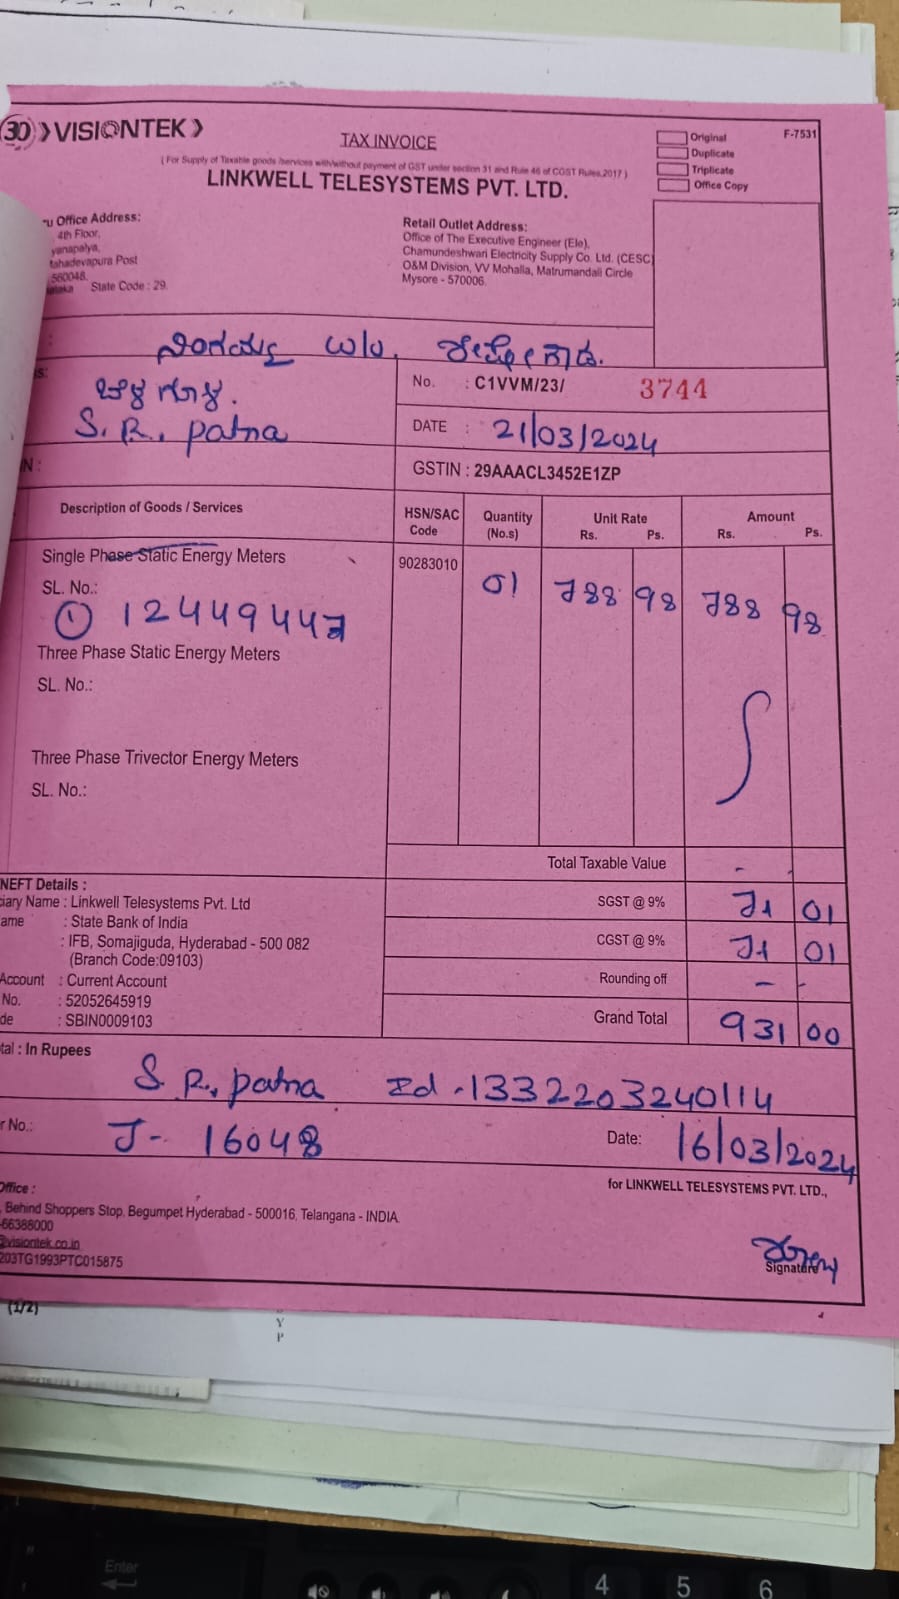 30 VISIONTEK
TAX INVOICE
( For Supply of Taxable goods /services with/without payment of GST under section 31 and Rule 46 of CGST Rules,2017 )
LINKWELL TELESYSTEMS PVT. LTD.
Original
Duplicate
Triplicate
Office Copy
F-7531
Office Address:
4th Floor,
Post
560048.
State Code : 29.
Retail Outlet Address:
Office of The Executive Engineer (Ele),
Chamundeshwari Electricity Supply Co. Ltd. (CESC)
O&M Division, VV Mohalla, Matrumandali Circle
Mysore - 570006.
S. R., patna
No. : C1VVM/23/ 3744
DATE : 21/03/2024
GSTIN : 29AAACL3452E1ZP
Description of Goods / Services HSN/SAC Code Quantity (No.s) Unit Rate Rs. Ps. Amount Rs. Ps.
Single Phase Static Energy Meters 90283010 01 788 98 788 98
SL. No.:
① 12449447
Three Phase Static Energy Meters
SL. No.:
Three Phase Trivector Energy Meters
SL. No.:
Total Taxable Value -
SGST @ 9% 71 01
CGST @ 9% 71 01
Rounding off - -
Grand Total 931 00
NEFT Details :
Name : Linkwell Telesystems Pvt. Ltd
: State Bank of India
: IFB, Somajiguda, Hyderabad - 500 082
(Branch Code:09103)
Account : Current Account
No. : 52052645919
: SBIN0009103
: In Rupees
S. R., patna Id - 1332203240114
No.: J- 16048
Date: 16/03/2024
for LINKWELL TELESYSTEMS PVT. LTD.,
Office :
Behind Shoppers Stop, Begumpet Hyderabad - 500016, Telangana - INDIA.
66388000
visiontek.co.in
203TG1993PTC015875
Signature
(1/2)
Y
P
Enter
4 5 6